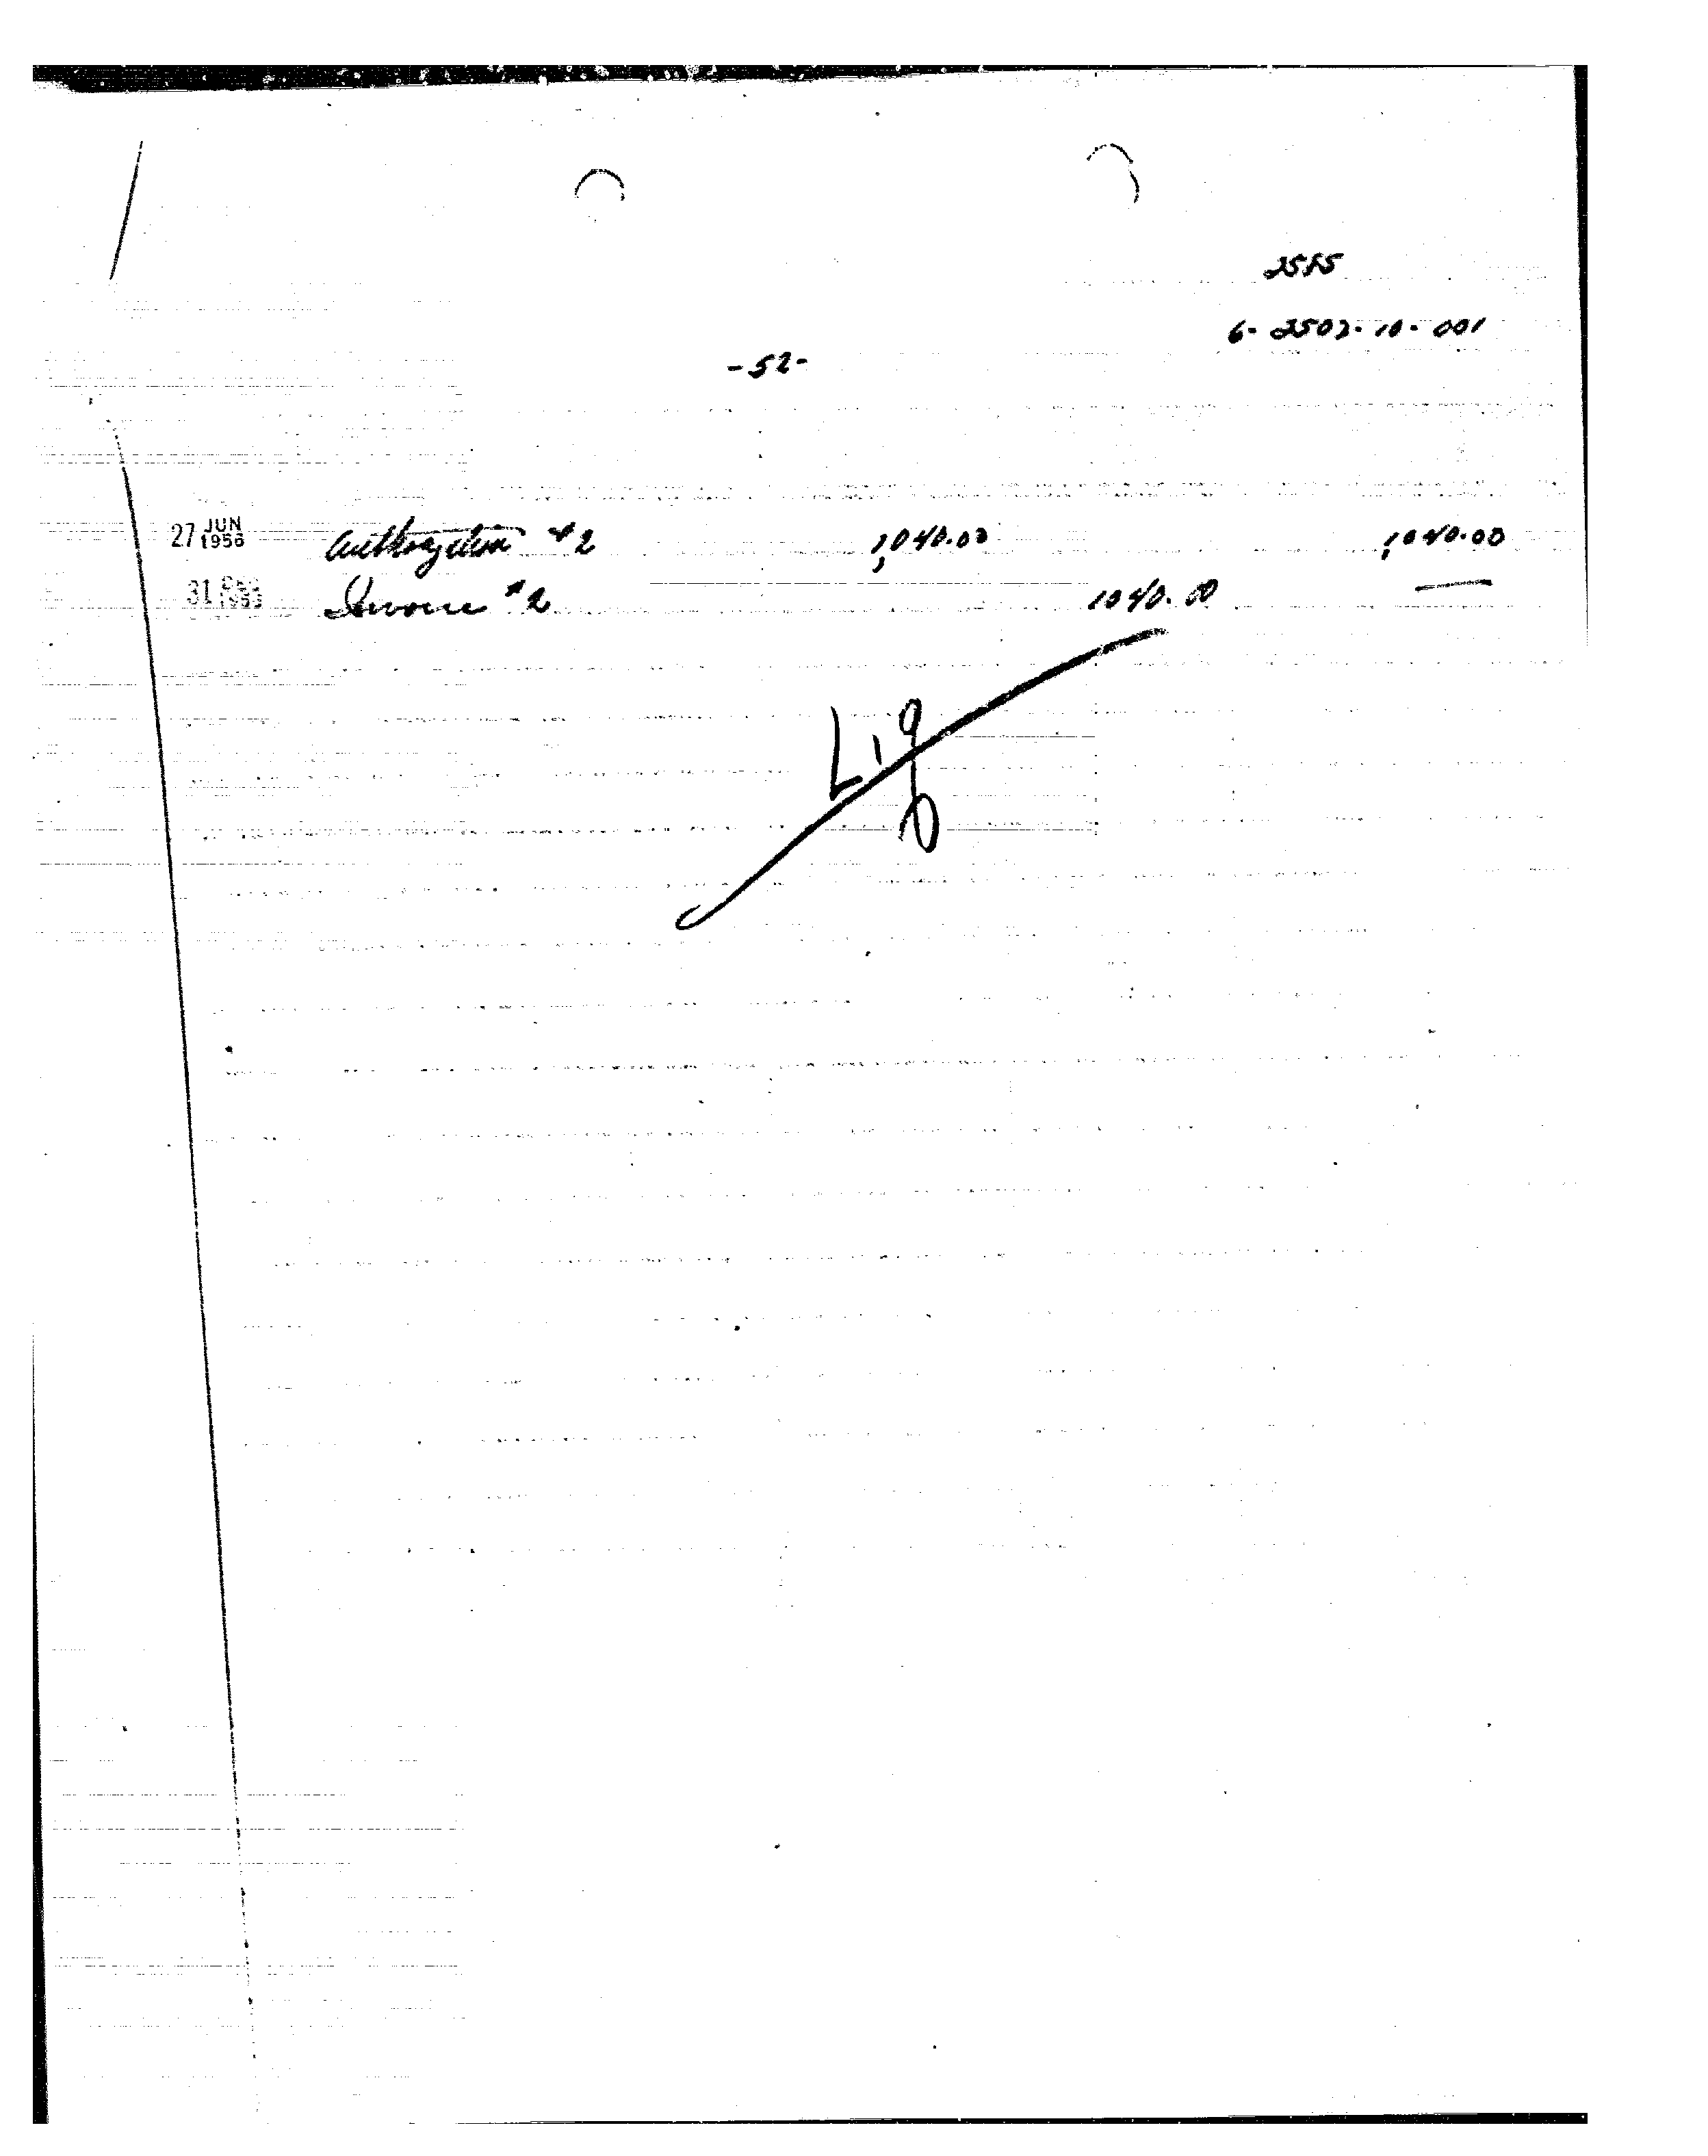 2555
6-2502-10-001
-52-
27 JUN 1956 Authorization #2 1,040.00 1,040.00
31 Invoice #2 1040.00 —
Liq